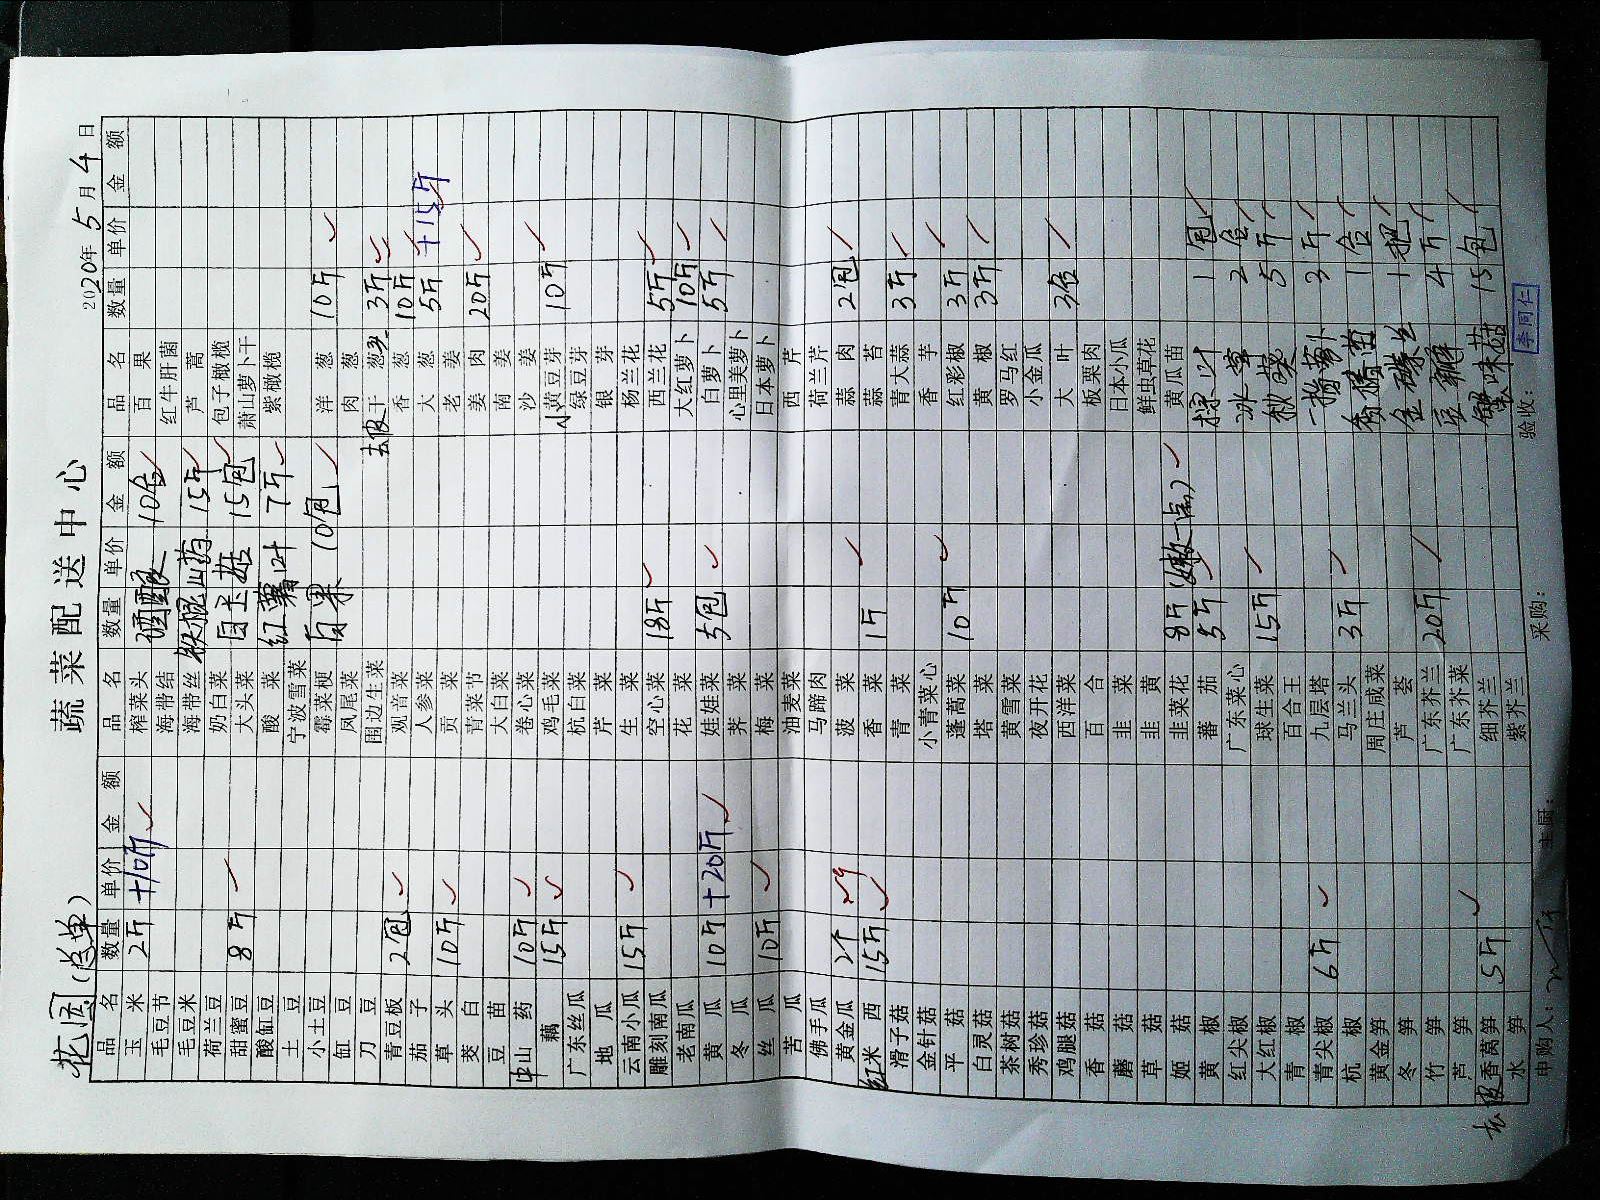 蔬菜配送中心
花园(送单) 2020年5月4日
品名 数量 单价 金额 品名 数量 单价 金额 品名 数量 单价 金额
玉米 2斤 +10斤 榨菜头 酒酿 10盒 百果
毛豆节 海带结 红牛肝菌
毛豆米 海带丝 铁棍山药 15斤 芦蒿
荷兰豆 奶白菜 包子橄榄
甜蜜豆 8斤 大头菜 白玉菇 15包 萧山萝卜干
酸缸豆 酸菜 红薯叶 7斤 紫橄榄
土豆 宁波雪菜
小土豆 霉菜梗 白果 10包 洋葱 10斤
缸豆 凤尾菜 肉葱
刀豆 围边生菜 去皮干葱头 3斤
青豆板 2包 观音菜 香葱 10斤
茄子 人参菜 大葱 5斤 +15斤
草头 10斤 贡菜 老姜
茭白 青菜节 姜肉 20斤
豆苗 大白菜 南姜
中山药 10斤 卷心菜 沙姜
藕 15斤 鸡毛菜 小黄豆芽 10斤
广东丝瓜 杭白菜 绿豆芽
地瓜 芹菜 银芽
云南小瓜 15斤 生菜 杨兰花
雕刻南瓜 空心菜 18斤 西兰花 5斤
老南瓜 花菜 大红萝卜 10斤
黄瓜 10斤 +20斤 娃娃菜 5包 白萝卜 5斤
冬瓜 荠菜 心里美萝卜
丝瓜 10斤 梅菜 日本萝卜
苦瓜 油麦菜 西芹
佛手瓜 马蹄肉 荷兰芹
黄金瓜 2个 菠菜 蒜肉 2包
红米西 15斤 香菜 1斤 蒜苔
滑子菇 青菜 青大蒜 3斤
金针菇 小青菜心 香芋
平菇 蓬蒿菜 10斤 红彩椒 3斤
白灵菇 塔菜 黄椒 3斤
茶树菇 黄雪菜 罗马红
秀珍菇 夜开花 小金瓜
鸡腿菇 西洋菜 大叶 3包
香菇 百合 板栗肉
蘑菇 韭菜 日本小瓜
草菇 韭黄 鲜虫草花
姬菇 韭菜花 8斤(嫩一点) 黄瓜苗
黄椒 蕃茄 5斤 1包
红尖椒 广东菜心 冰草 2盒
大红椒 球生菜 15斤 秋葵 5斤
青椒 百合王 一指萝卜 3斤
青尖椒 6斤 九层塔 1盒
杭椒 马兰头 3斤
黄金笋 周庄咸菜 1把
冬笋 芦荟
竹笋 广东芥兰 20斤 豆瓣 4斤
芦笋 广东芥菜
去皮香莴笋 5斤 细芥兰 蟹味菇 15包
水笋 紫芥兰
申购人： 主厨： 采购： 验收： 李同仁